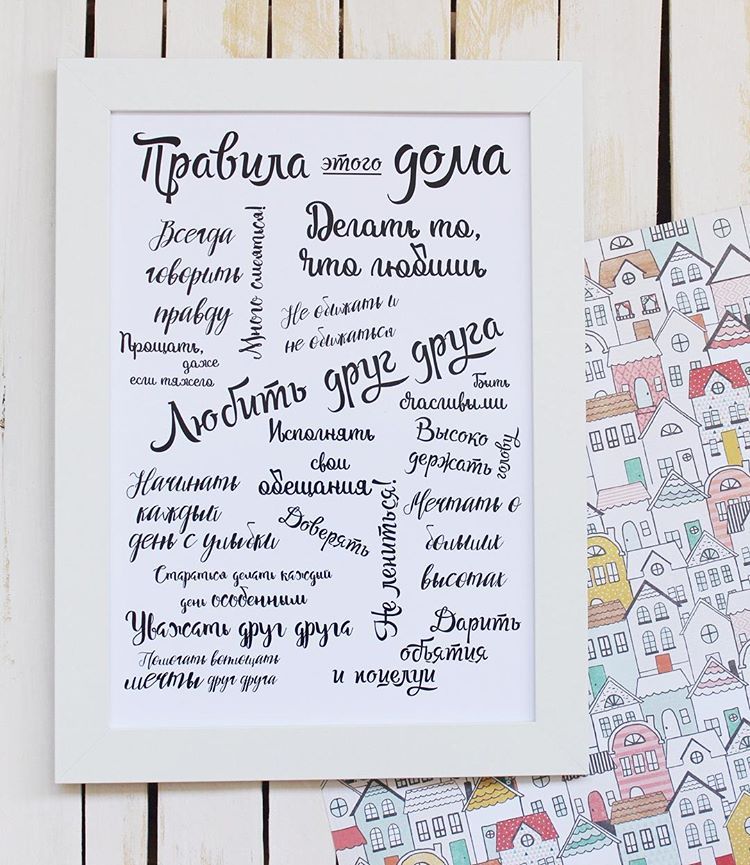 Правила этого дома
Всегда
говорить
правду
Много смеяться!
Делать то,
что любишь
Не обижать и
не обижаться
Прощать,
даже
если тяжело
Любить друг друга
Быть
счасливыми
Исполнять
свои
обещания
Высоко
держать
голову
Начинать
каждый
день с улыбки
Доверять
Не лениться!
Мечтать о
больших
высотах
Старатися делать каждий
день особенным
Уважать друг друга
Дарить
объятия
и поцелуи
Помогать воплощать
мечты друг друга